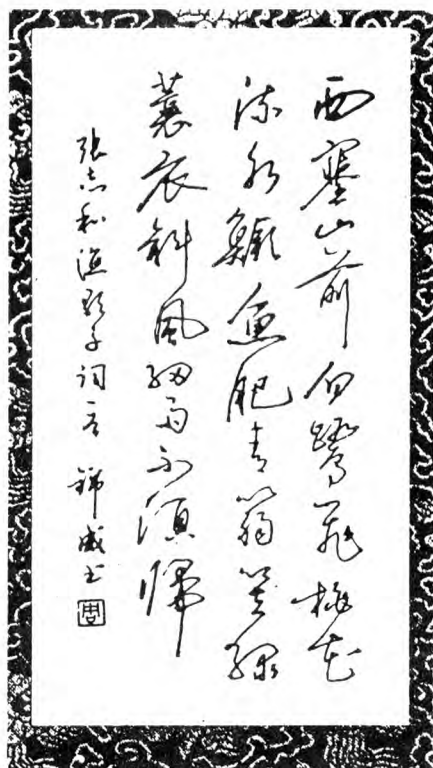 西塞山前白鷺飛桃花
流水鱖魚肥青箬笠綠
蓑衣斜風細雨不須歸
張志和漁歌子詞一首 錦威书
周